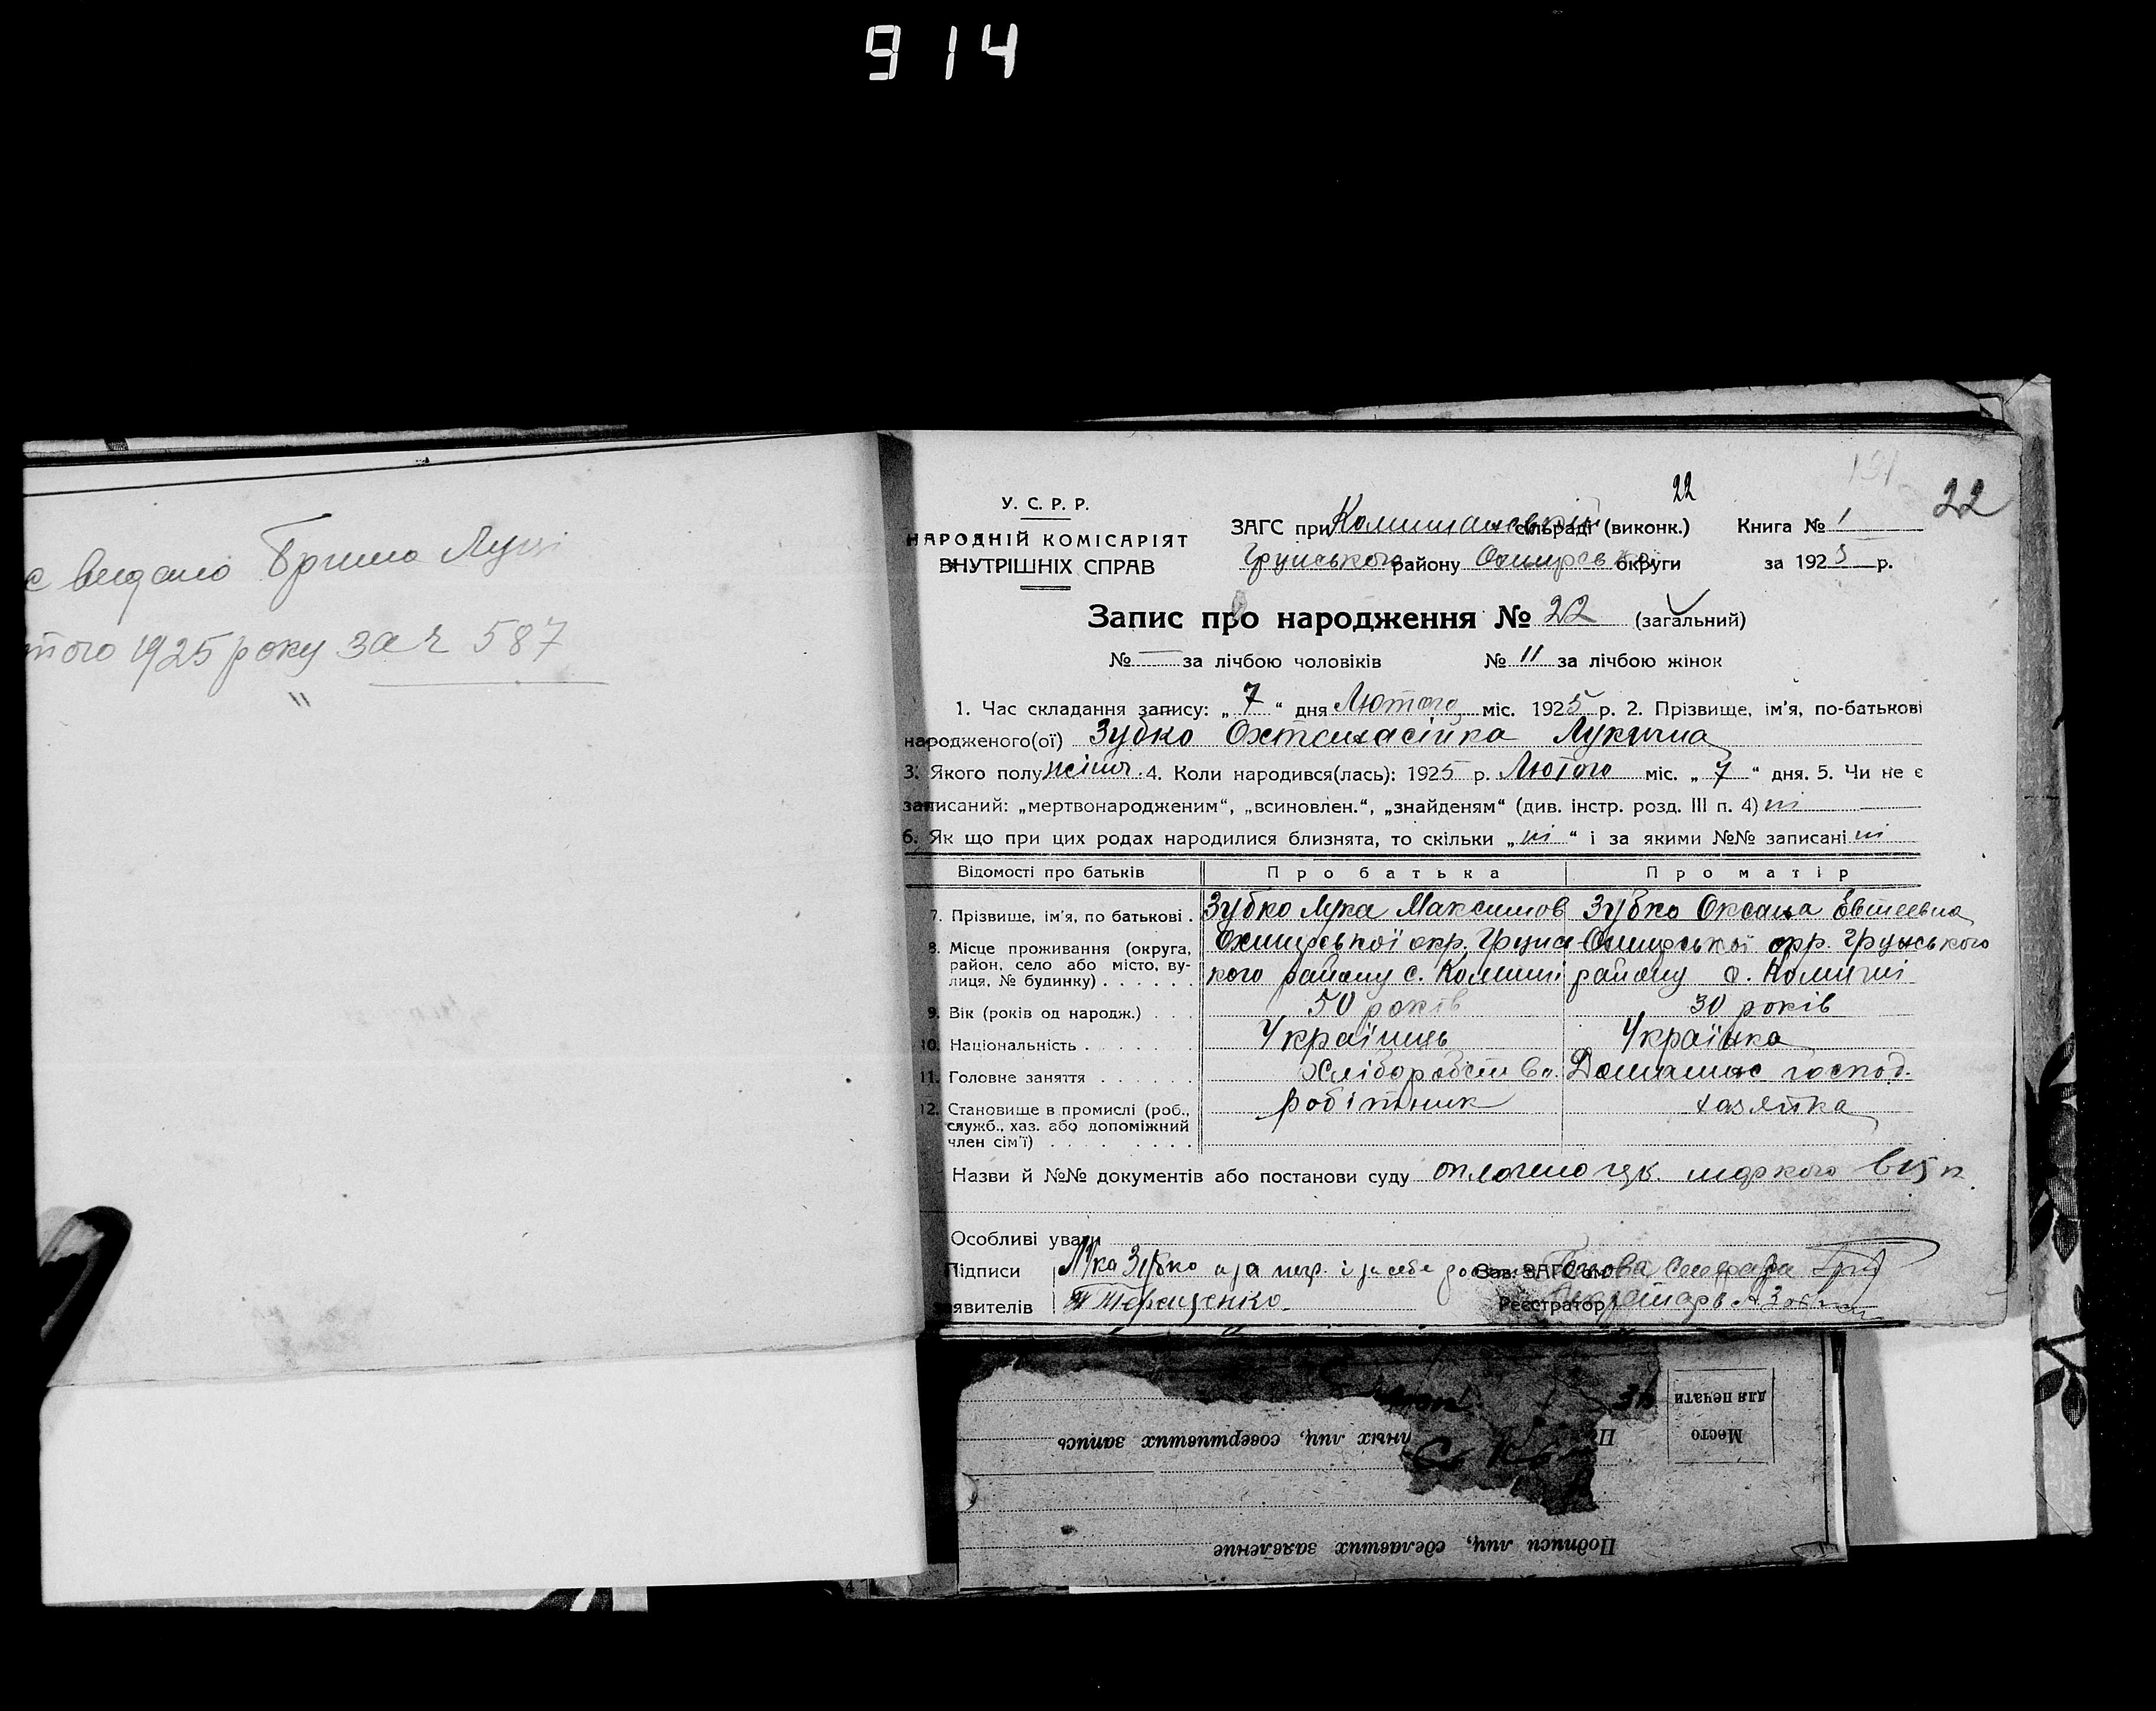 914
видано Брина Луці
того 1925 року за ч 587
"
22
22
У. С. Р. Р.
НАРОДНІЙ КОМІСАРІЯТ
ВНУТРІШНІХ СПРАВ
ЗАГС при Комишанській сільраді (виконк.) Книга № 1
Грунського району Охтирської округи за 1925 р.
Запис про народження № 22 (загальний)
№ — за лічбою чоловіків № 11 за лічбою жінок
1. Час складання запису: „ 7 “ дня Лютого міс. 1925 р. 2. Прізвище, ім'я, по-батькові
народженого(ої) Зубко Лукична
3. Якого полу жіноч. 4. Коли народився(лась): 1925 р. Лютого міс. „ 7 “ дня. 5. Чи не є
записаний: „мертвонародженим“, „всиновлен.“, „знайденям“ (див. інстр. розд. III п. 4) ні
6. Як що при цих родах народилися близнята, то скільки „ ні “ і за якими №№ записані ні
Відомості про батьків Про батька Про матір
7. Прізвище, ім'я, по батькові . Зубко Лука Максимов Зубко Оксана Євтеевна
8. Місце проживання (округа, район, село або місто, вулиця, № будинку) . . . . . . Охтирської окр. Грунского району с. Комиші Охтирської окр. Грунського району с. Комиші
9. Вік (років од народж.) . . . 50 років 30 років
10. Національність . . . . . . . Українець Українка
11. Головне заняття . . . . . . Хліборобств. Домашнє господ.
12. Становище в промислі (роб., служб., хаз. або допоміжний член сім'ї) . . . . . . . . робітник хазяйка
Назви й №№ документів або постанови суду оплочено маркого в 15 к
Особливі уваги
Підписи Лука Зубко Зав. ЗАГС'ом Голова
заявителів Терещенко Реєстратор Секретарь
Место
для печати
ных лиц, совершивших запись
Подписи лиц, сделавших заявление